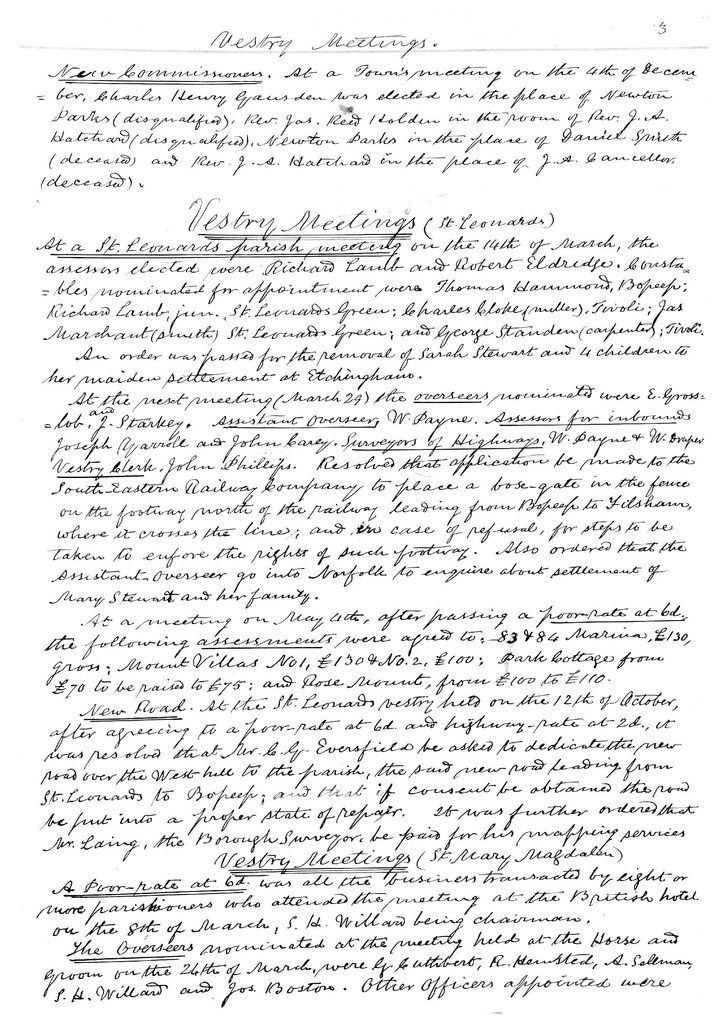 3
Vestry Meetings.
New Commissioners. At a Town's meeting on the 4th of Decem-
=ber, Charles Henry Gausden was elected in the place of Newton
Parks (disqualified), Rev. Jas. Reed Holden in the room of Rev. J. A.
Hatchard (disqualified), Newton Parks in the place of Daniel Smith
(deceased) and Rev. J. A. Hatchard in the place of J. A. Cancellor,
(deceased).
Vestry Meetings (St Leonards)
At a St. Leonards parish meeting on the 14th of March, the
assessors elected were Richard Lamb and Robert Eldridge. Consta-
=bles nominated for appointment were Thomas Hammond, Bopeep;
Richard Lamb, jun., St. Leonards Green; Charles Cloke (miller), Tivoli; Jas
Marchant (smith) St. Leonards Green; and George Standen (carpenter), Tivoli.
An order was passed for the removal of Sarah Stewart and 4 children to
her maiden settlement at Etchingham.
At the next meeting (March 29) the overseers nominated were E. Gross-
=lob, and J. Starkey. Assistant Overseer, W. Payne. Assessors for inbounds
Joseph Yarroll and John Carey. Surveyors of Highways, W. Payne & W. Draper
Vestry Clerk, John Phillips. Resolved that application be made to the
South Eastern Railway Company to place a box-gate in the fence
on the footway north of the railway leading from Bopeep to Filsham,
where it crosses the line; and in case of refusal, for steps to be
taken to enfore the rights of such footway. Also ordered that the
Assistant-Overseer go into Norfolk to enquire about settlement of
Mary Stewart and her family.
At a meeting on May 4th, after passing a poor-rate at 6d.
the following assessments were agreed to: 83 & 84 Marina, £130,
gross; Mount Villas No 1, £130 & No. 2, £100; Park Cottage from
£70 to be raised to £75; and Rose Mount, from £100 to £110.
New Road. At the St. Leonards vestry held on the 12th of October,
after agreeing to a poor-rate at 6d. and highway-rate at 2d., it
was resolved that Mr. C. G. Eversfield be asked to dedicate the new
road over the West hill to the parish, the said new road leading from
St. Leonards to Bopeep; and that if consent be obtained the road
be put into a proper state of repair. It was further ordered that
Mr. Laing, the Borough Surveyor, be paid for his mapping services
Vestry Meetings (St. Mary Magdalen)
A Poor-rate at 6d. was all the business transacted by eight or
more parishioners who attended the meeting at the British hotel
on the 8th of March, S. H. Willard being chairman.
The Overseers nominated at the meeting held at the Horse and
Groom on the 26th of March, were G. Cuthbert, R. Hempsted, A. Selleman,
S. H. Willard and Jos. Boston. Other Officers appointed were